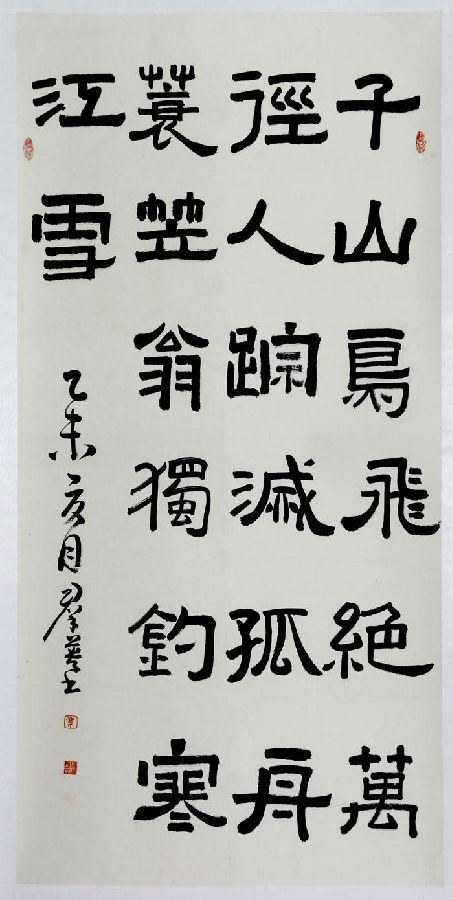 子山鳥飛絕萬
徑人踪滅孤舟
蓑笠翁獨釣寒
江雪
乙未夏月